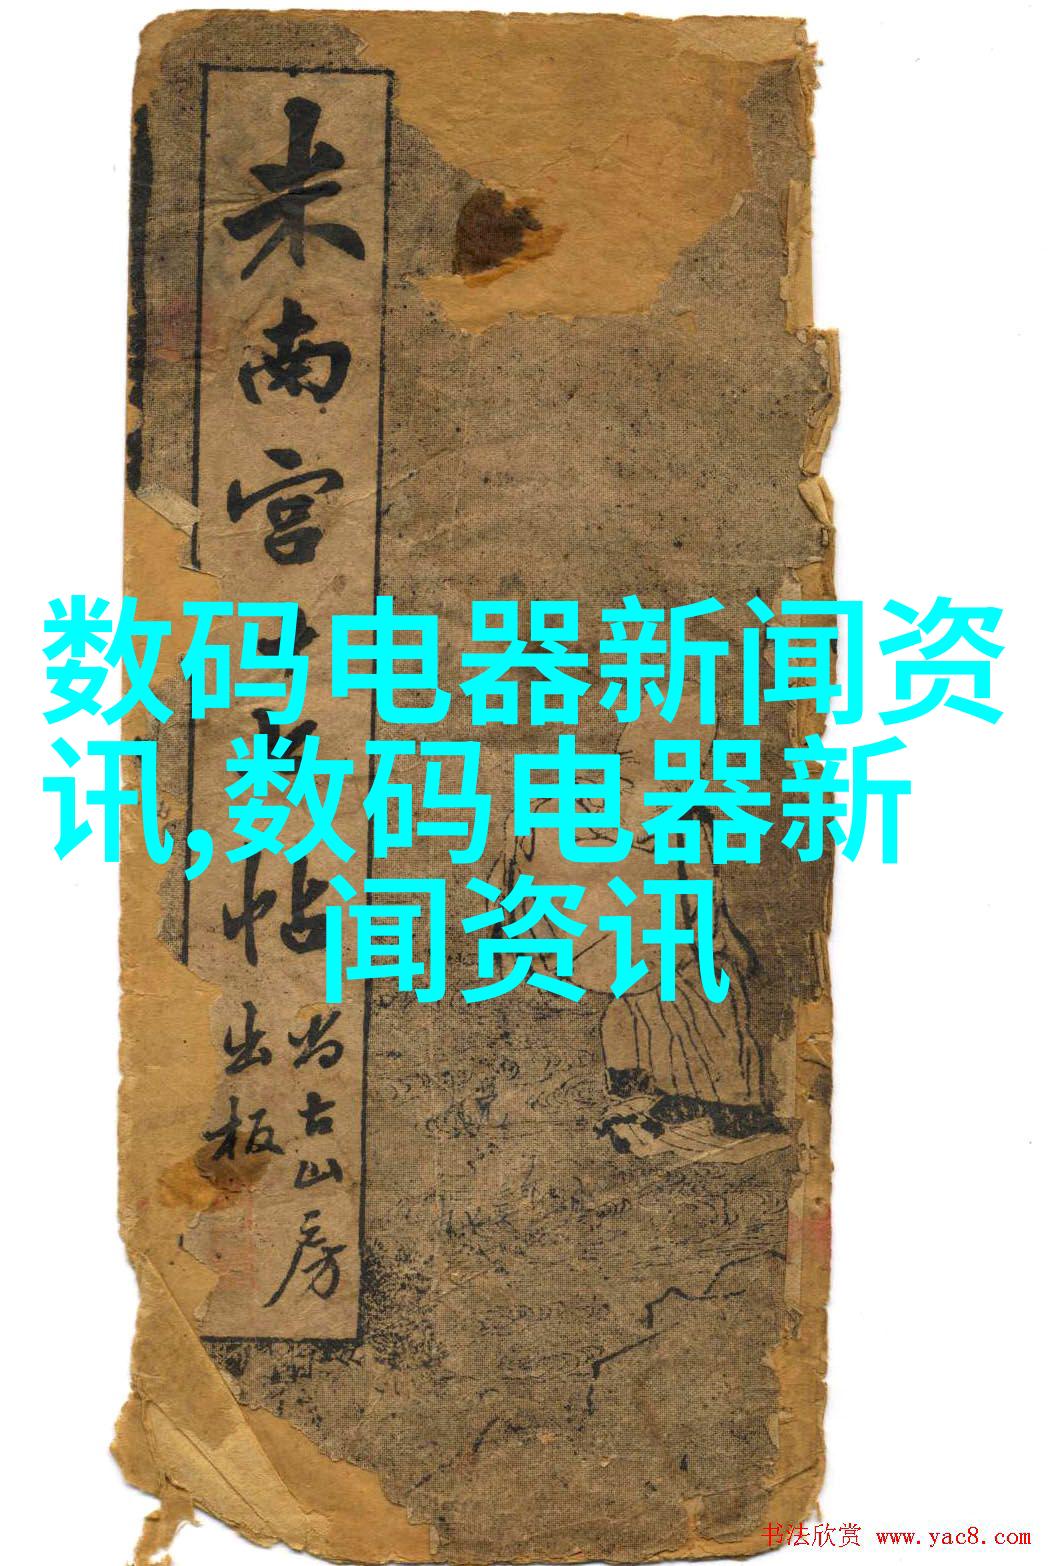 米南宫
帖
尚古山房
出板
数码电器新闻资
讯,数码电器新
闻资讯
书法欣赏 www.yac8.com